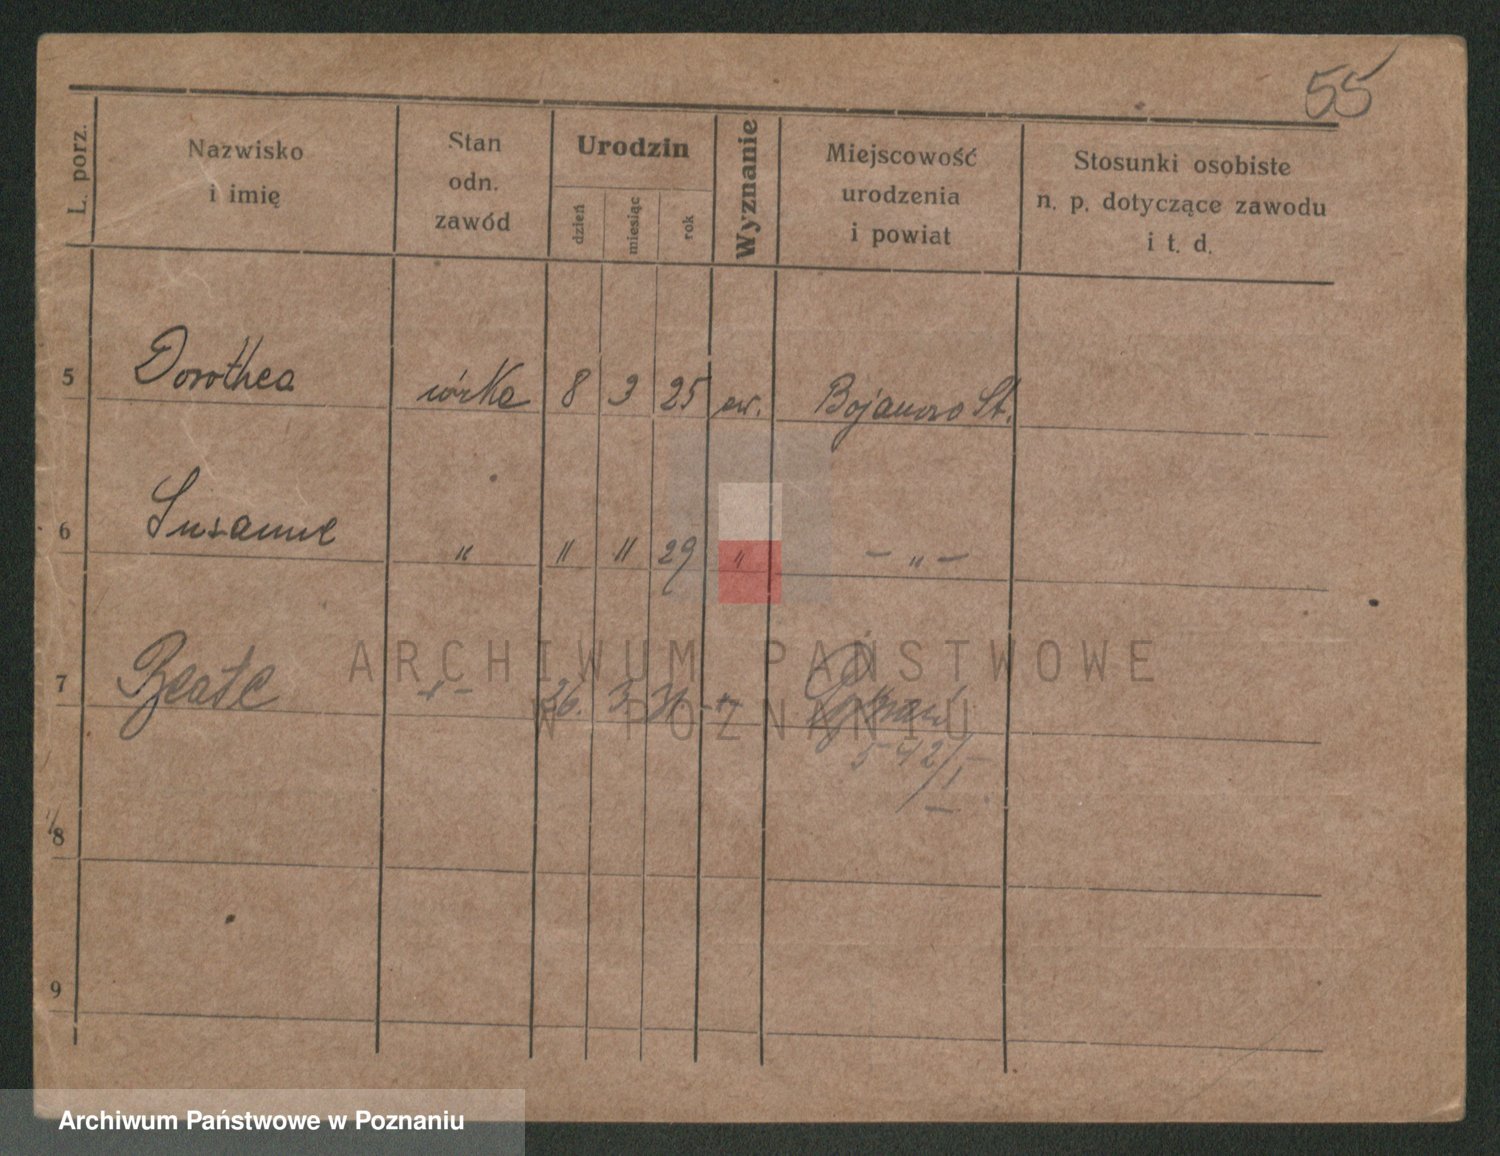 55
L. porz.
Nazwisko
i imię
Stan
odn.
zawód
Urodzin
dzień
miesiąc
rok
Wyznanie
Miejscowość
urodzenia
i powiat
Stosunki osobiste
n. p. dotyczące zawodu
i t. d.
5 Dorothea córka 8 3 25 ew. Bojanowo St.
6 Susanne " " " 29 " – " –
7 Beate – " – 26. 3 31 – " – Poznań
542/I
8
9
ARCHIWUM PAŃSTWOWE
W POZNANIU
Archiwum Państwowe w Poznaniu